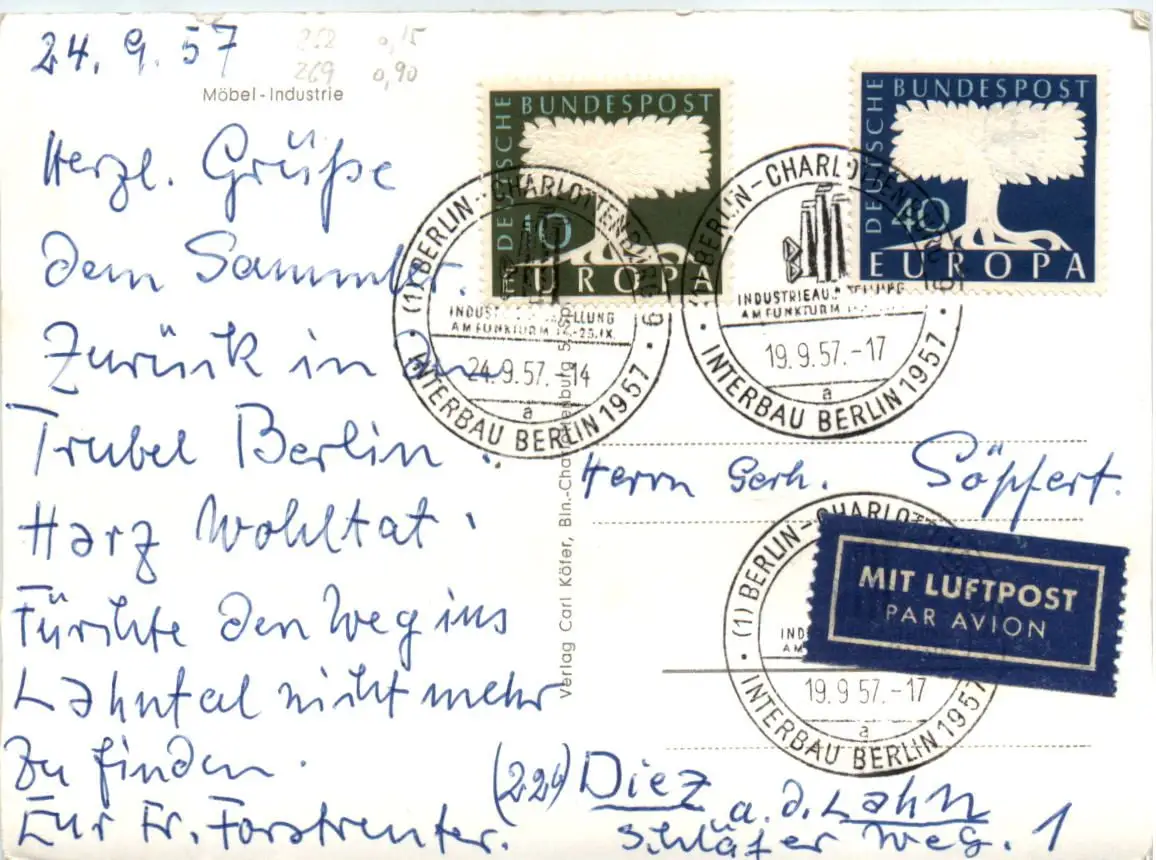 24. 9. 57
252 0,15
269 0,90
Möbel-Industrie
Herzl. Grüße
dem Sammler.
Zurück in den
Trubel Berlin.
Harz Wohltat.
Fürchte den Weg ins
Lahntal nicht mehr
zu finden.
Eur Fr. Forstreuter.
DEUTSCHE BUNDESPOST
10
EUROPA
DEUTSCHE BUNDESPOST
40
EUROPA
(1) BERLIN-CHARLOTTENBURG 9
INDUSTRIEAUSSTELLUNG
AM FUNKTURM 14.-29.IX.
24.9.57.-14
a
INTERBAU BERLIN 1957
(1) BERLIN-CHARLOTTENBURG 9
INDUSTRIEAUSSTELLUNG
AM FUNKTURM
19.9.57.-17
a
INTERBAU BERLIN 1957
Verlag Carl Köfer, Bln.-Charlottenburg 5, Sp
Herrn Gerh. Söpfert.
(1) BERLIN-CHARLOTT
IND
AM
19.9.57.-17
a
INTERBAU BERLIN 1957
MIT LUFTPOST
PAR AVION
(229) Diez a. d. Lahn
Schläfer Weg. 1